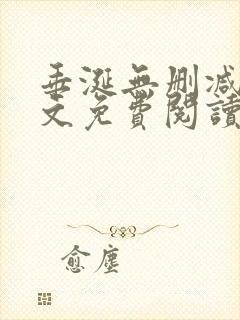 垂涎無刪減
文免費閱讀
愈塵